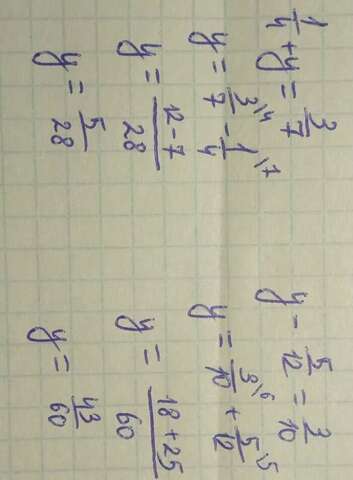 1/4 + y = 3/7
y = 3/7\4 - 1/4\7
y = 12-7/28
y = 5/28
y - 5/12 = 3/10
y = 3/10\6 + 5/12\5
y = 18+25/60
y = 43/60